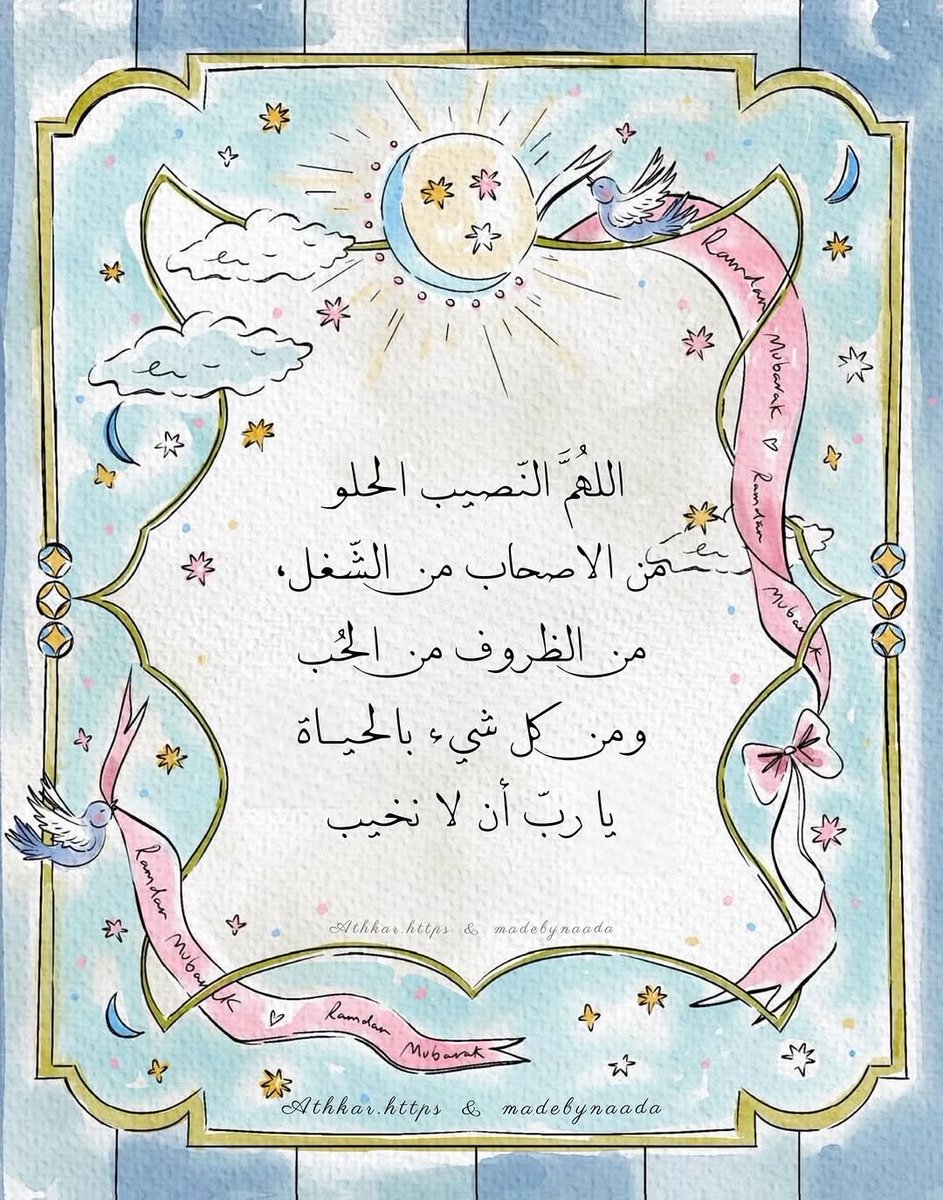 Ramdan Mubarak ♡ Ramdan Mubarak
اللهُمَّ النّصيب الحلو
من الاصحاب من الشّغل،
من الظروف من الحُب
ومن كل شيء بالحياة
يا ربّ أن لا نخيب
Athkar.https & madebynaada
Ramdan Mubarak ♡ Ramdan Mubarak
Athkar.https & madebynaada